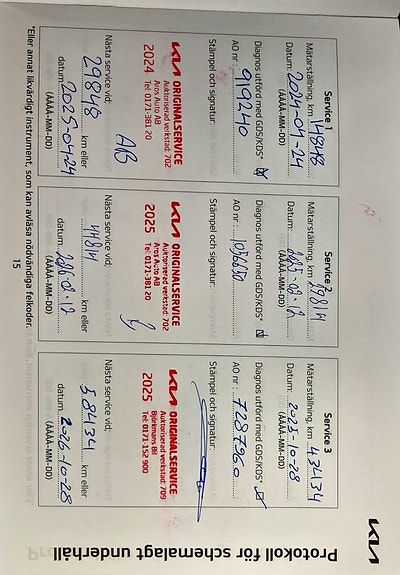 KIA
Protokoll för schemalagt underhåll
Service 1
Mätarställning, km 14848
Datum: 2024-04-24
(ÅÅÅÅ-MM-DD)
Diagnos utförd med GDS/KDS*
AO nr: 919240
Stämpel och signatur:
KIA ORIGINALSERVICE
Auktoriserad verkstad: 702
Aros Auto AB
2024 Tel: 0171-381 20
AB
Nästa service vid:
29848 km eller
datum: 2025-04-24
(ÅÅÅÅ-MM-DD)
Service 2
Mätarställning, km
Datum:
(ÅÅÅÅ-MM-DD)
Diagnos utförd med GDS/KDS*
AO nr:
Stämpel och signatur:
KIA ORIGINALSERVICE
Auktoriserad verkstad: 702
Aros Auto AB
2025 Tel: 0171-381 20
Nästa service vid:
km eller
datum:
(ÅÅÅÅ-MM-DD)
Service 3
Mätarställning, km 43434
Datum: 2025-10-28
(ÅÅÅÅ-MM-DD)
Diagnos utförd med GDS/KDS*
AO nr: 7287960
Stämpel och signatur:
KIA ORIGINALSERVICE
Auktoriserad verkstad: 709
Björkmans Bil
2025 Tel: 0171-152 900
Nästa service vid:
58434 km eller
datum: 2026-10-28
(ÅÅÅÅ-MM-DD)
*Eller annat likvärdigt instrument, som kan avläsa nödvändiga felkoder.
15